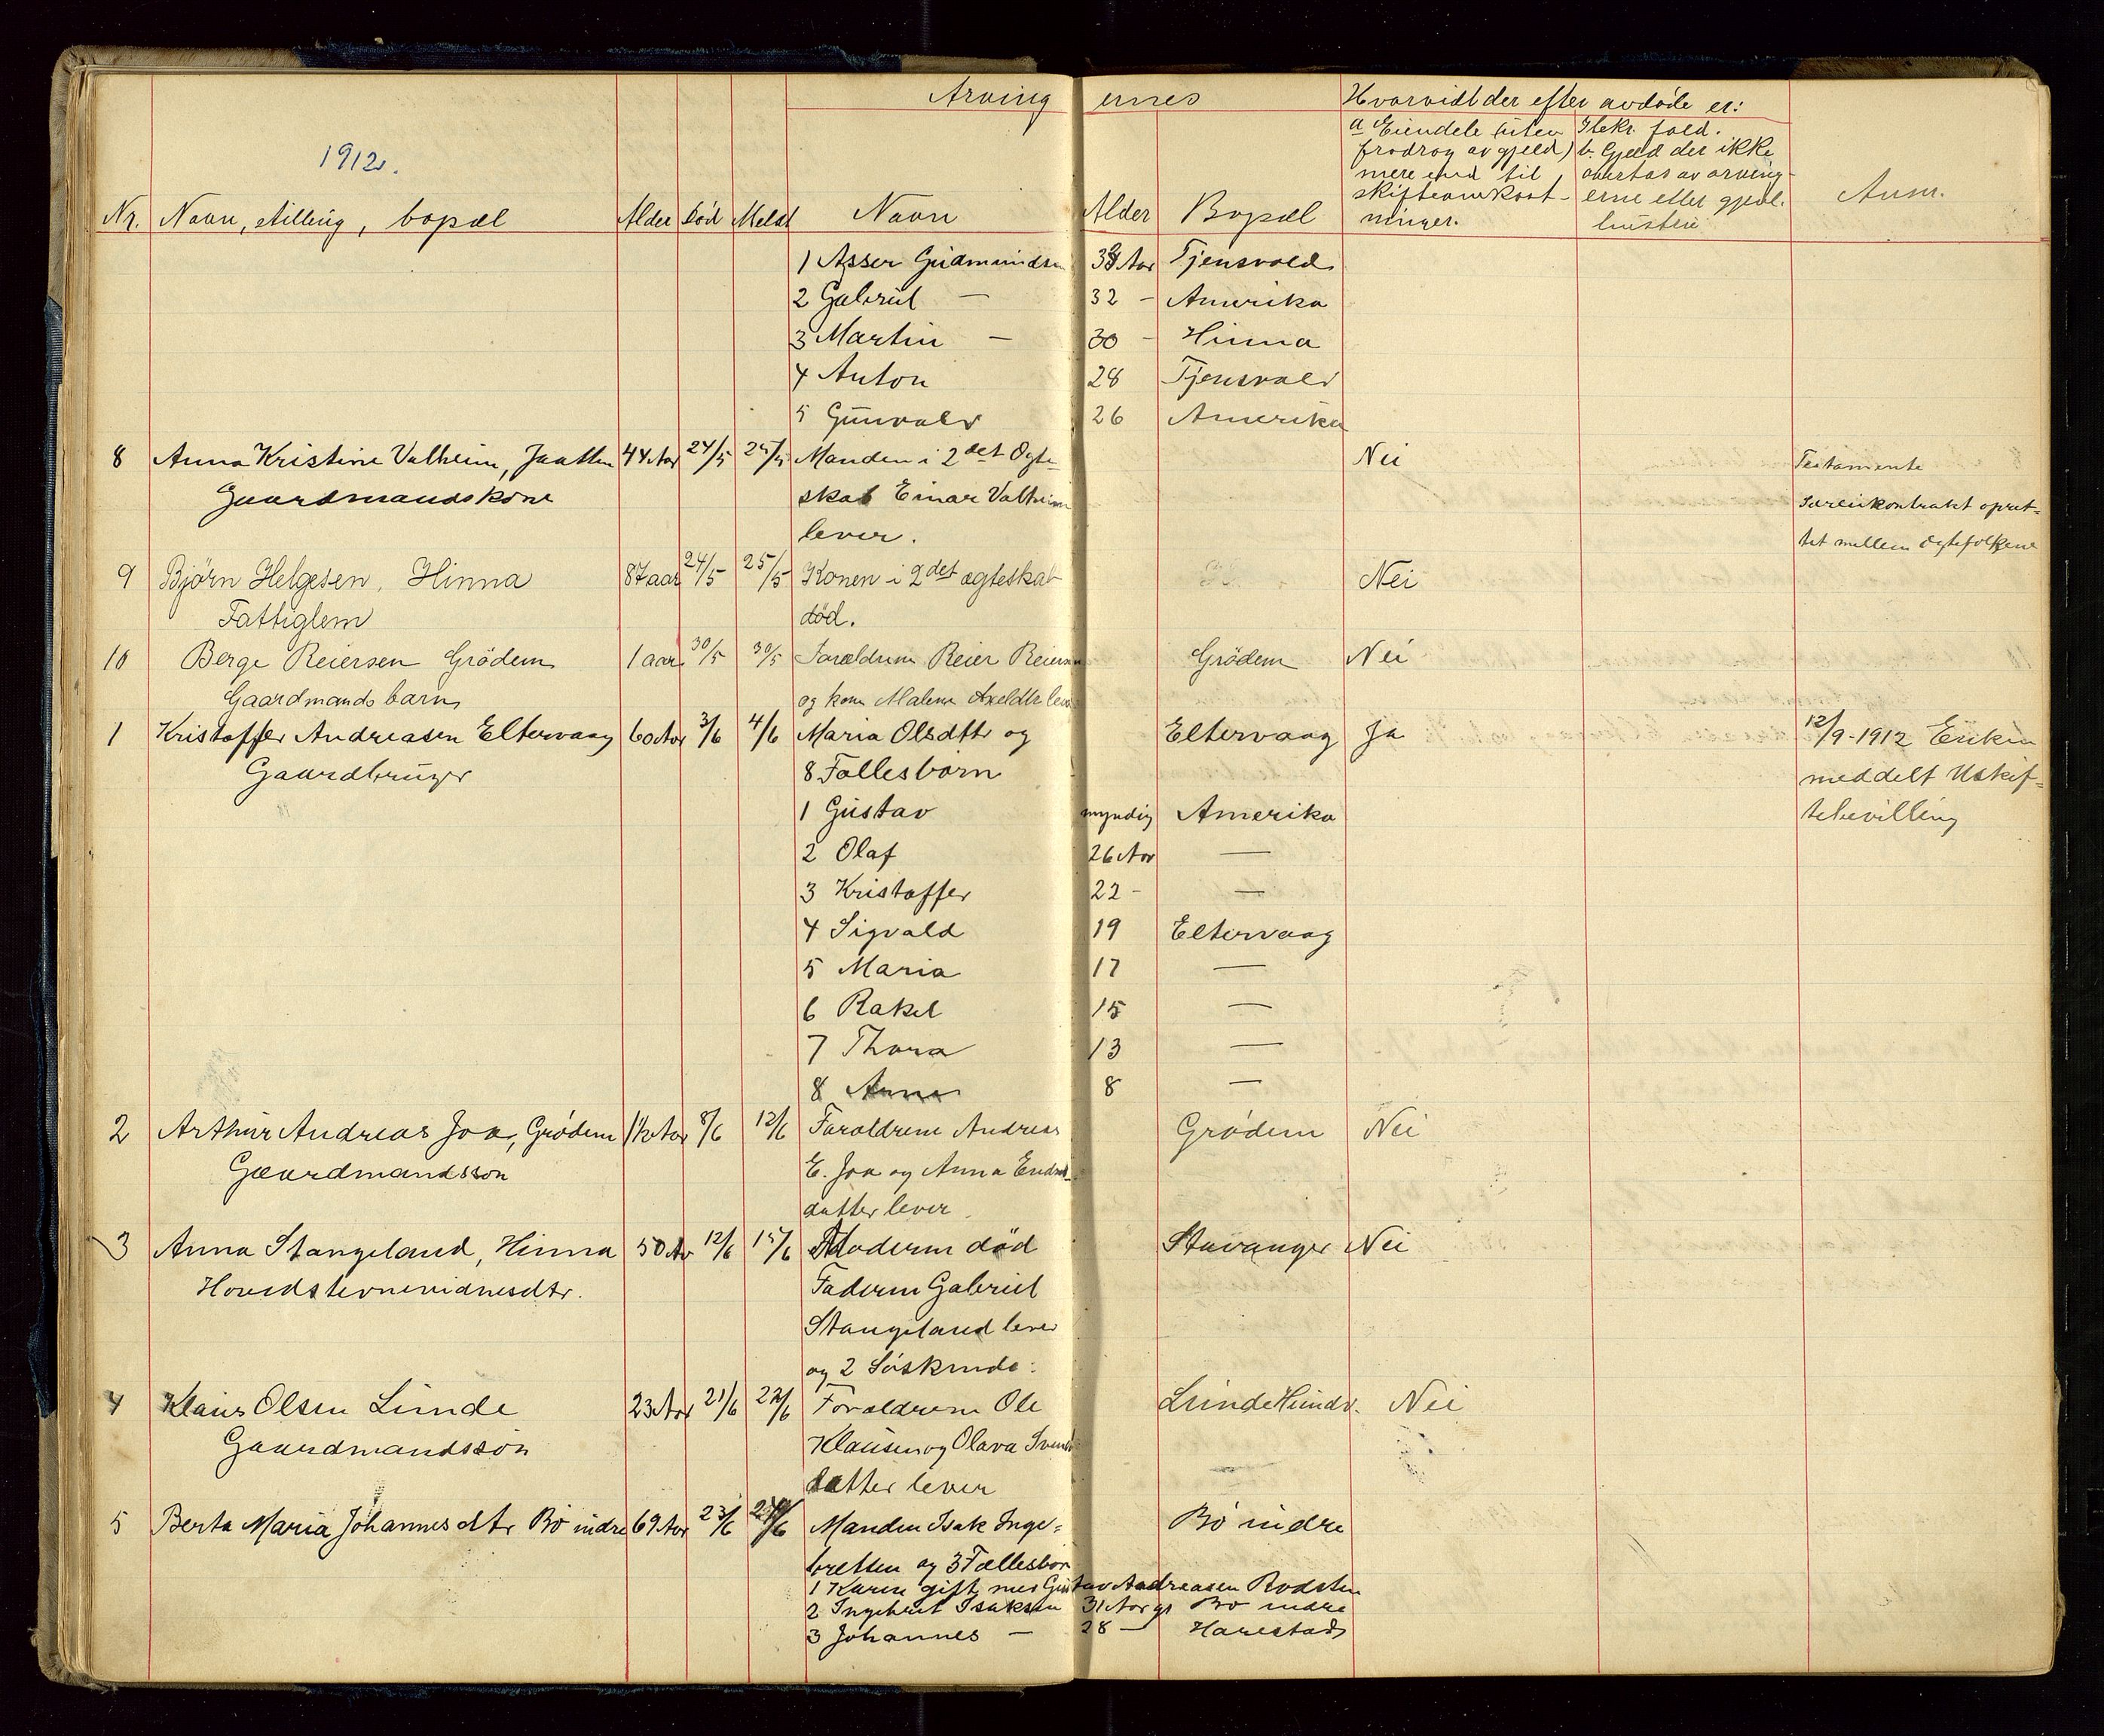 1912.
Arvingernes
Hvorvidt der efter avdøde er:
a Eiendele (uten
fradrag av gjeld)
mere end til
skifteomkost-
ninger.
I bekr. fald.
b. Gjeld der ikke
overtas av arving-
erne eller gjenl.
hustru
Nr. Navn, stilling, bopæl Alder Død Meldt Navn Alder Bopæl Anm.
1 Asser Gudmundsen Aar Tjensvold
2 Gabriel — 32 - Amerika
3 Martin — 30 - Hinna
4 Anton 28 Tjensvold
5 Gunvald 26 Amerika
8 Anna Kristine Valheim, Jaatten 44 Aar 24/5 25/5 Manden i 2det Egte- Nei Testamente
Gaardmandskone skab Einar Valheim Særeiekontrakt opret=
lever. tet mellem Egtefolkene
9 Björn Helgesen, Hinna 87 aar 24/5 25/5 Konen i 2det ægteskab Nei
Fattiglem död.
10 Berge Reiersen Grödem 1 aar 30/5 30/5 Forældrene Reier Reiersen Grödem Nei
Gaardmands barn og kone Malene Axeldtr lever
1 Kristoffer Andreasen Eltervaag 60 Aar 3/6 4/6 Maria Olsdttr og Eltervaag Ja 12/9-1912 Enken
Gaardbruger 8 Fællesbørn meddelt Uskif=
1 Gustav myndig Amerika tebevilling
2 Olaf 26 Aar —
3 Kristoffer 22 - —
4 Sigvald 19 Eltervaag
5 Maria 17 —
6 Rakel 15 —
7 Thora 13 —
8 Anna 8 —
2 Arthur Andreas Joa, Grødem 1½ Aar 8/6 12/6 Forældrene Andreas Grødem Nei
Gaardmandssøn E. Joa og Anna
datter lever
3 Anna Stangeland, Hinna 50 Aar 12/6 15/6 Moderen död Stavanger Nei
Hovedstevnevidnesdtr. Faderen Gabriel
Stangeland lever
og 2 Søskende:
4 Klaus Olsen Lunde 23 Aar 21/6 22/6 Forældrene Ole Lunde Hundv. Nei
Gaardmandssön Klausen og Olava Svends
datter lever
5 Berta Maria Johannesdtr Bø indre 69 Aar 23/6 Manden Isak Inge= Bø indre
bretsen og 3 Fællesbørn
1 Karen gift med Gustav Andreasen
2 Ingebret Isaksen 31 Aar gl Bø indre
3 Johannes — 28 — Harestad